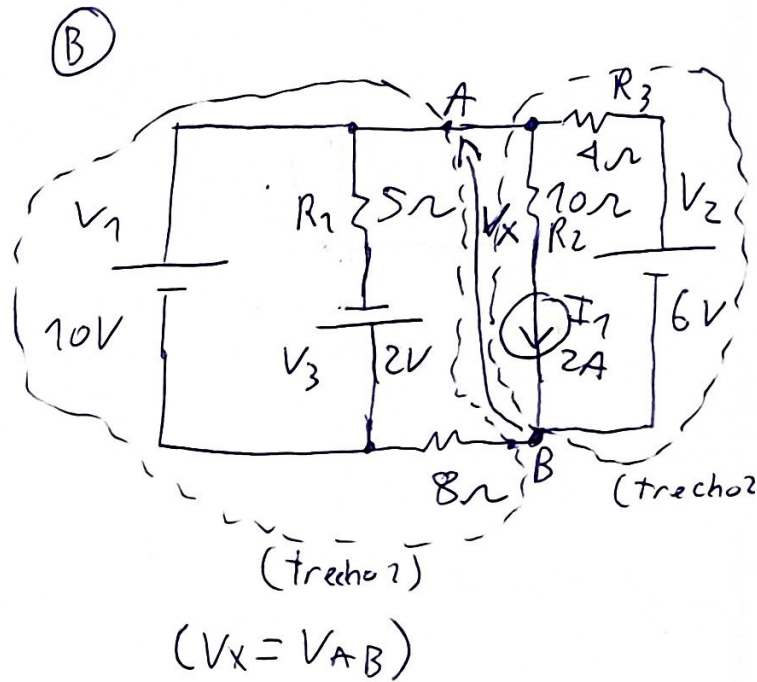 B
A
R3
4Ω
V1
R1
5Ω
Vx
10Ω
R2
V2
10V
V3
2V
I1
2A
6V
8Ω
B
(trecho 2
(trecho 1)
(Vx = VAB)